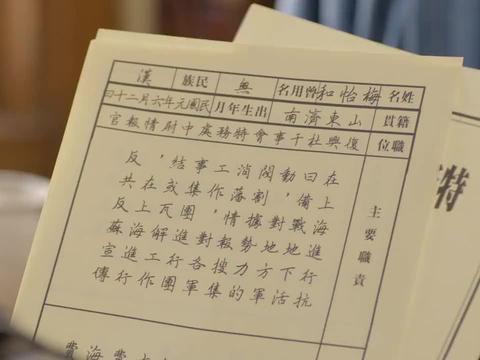 姓名 梅怡和 曾用名 無 民族 漢
籍貫 山東濟南 出生年月 民國元年六月二十
職位 復興杜干事會特務處中尉情報官
主要職責
在上海進行抗
日備戰地下活
動，對地方軍
閥割據勢力的
淌落情報搜集
工作，對各軍
事集團進行團
結或瓦解工作
，在上海進行
反共反蘇宣傳
特